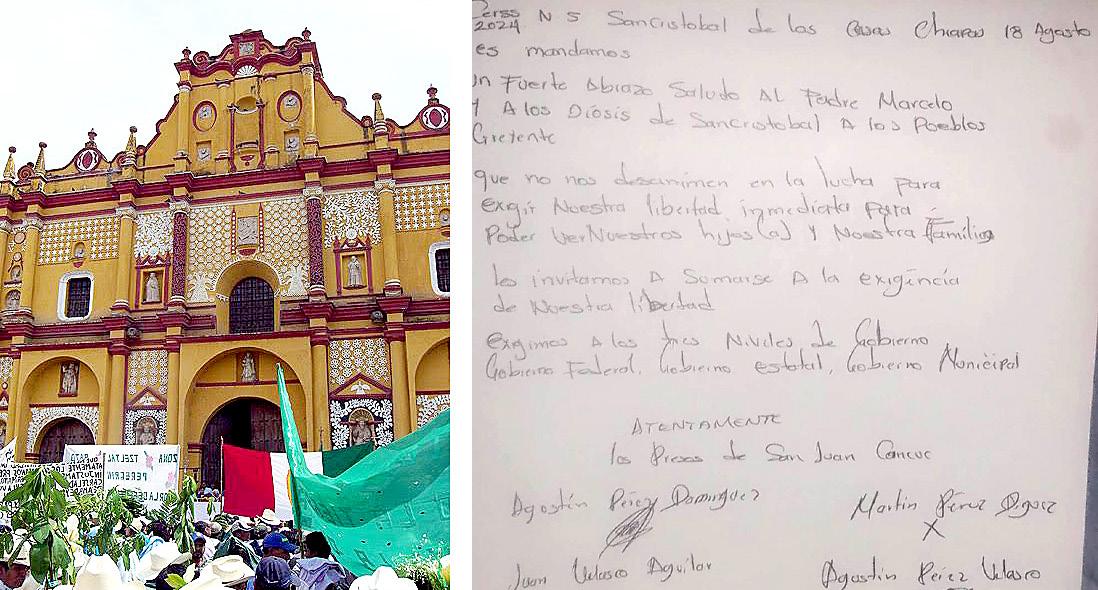 ZONA TZELTAL
PEREGRIN
POR LA DEFE
ATAMENTE LOS
INJUSTA
Cerss N 5 Sancristobal de las Casas Chiapas 18 Agosto
2024
es mandamos
un Fuerte Abrazo Saludo AL Padre Marcelo
Y A los Diósis de Sancristobal A los Pueblos
Creyente
que no nos desanimen en la lucha para
Exigir Nuestra libertad inmediata para
Poder ver Nuestros hijos (a) y Nuestra Familia
los invitamos A Somarse A la exigencia
de Nuestra libertad
exigimos A los tres Niveles de Gobierno
Gobierno Federal, Gobierno estatal, Gobierno Municipal
ATENTAMENTE
los Presos de San Juan Cancuc
Agostín Pérez Domínguez
Martin Pérez
X
Juan Velasco Aguilar
Agostin Pérez Velasco